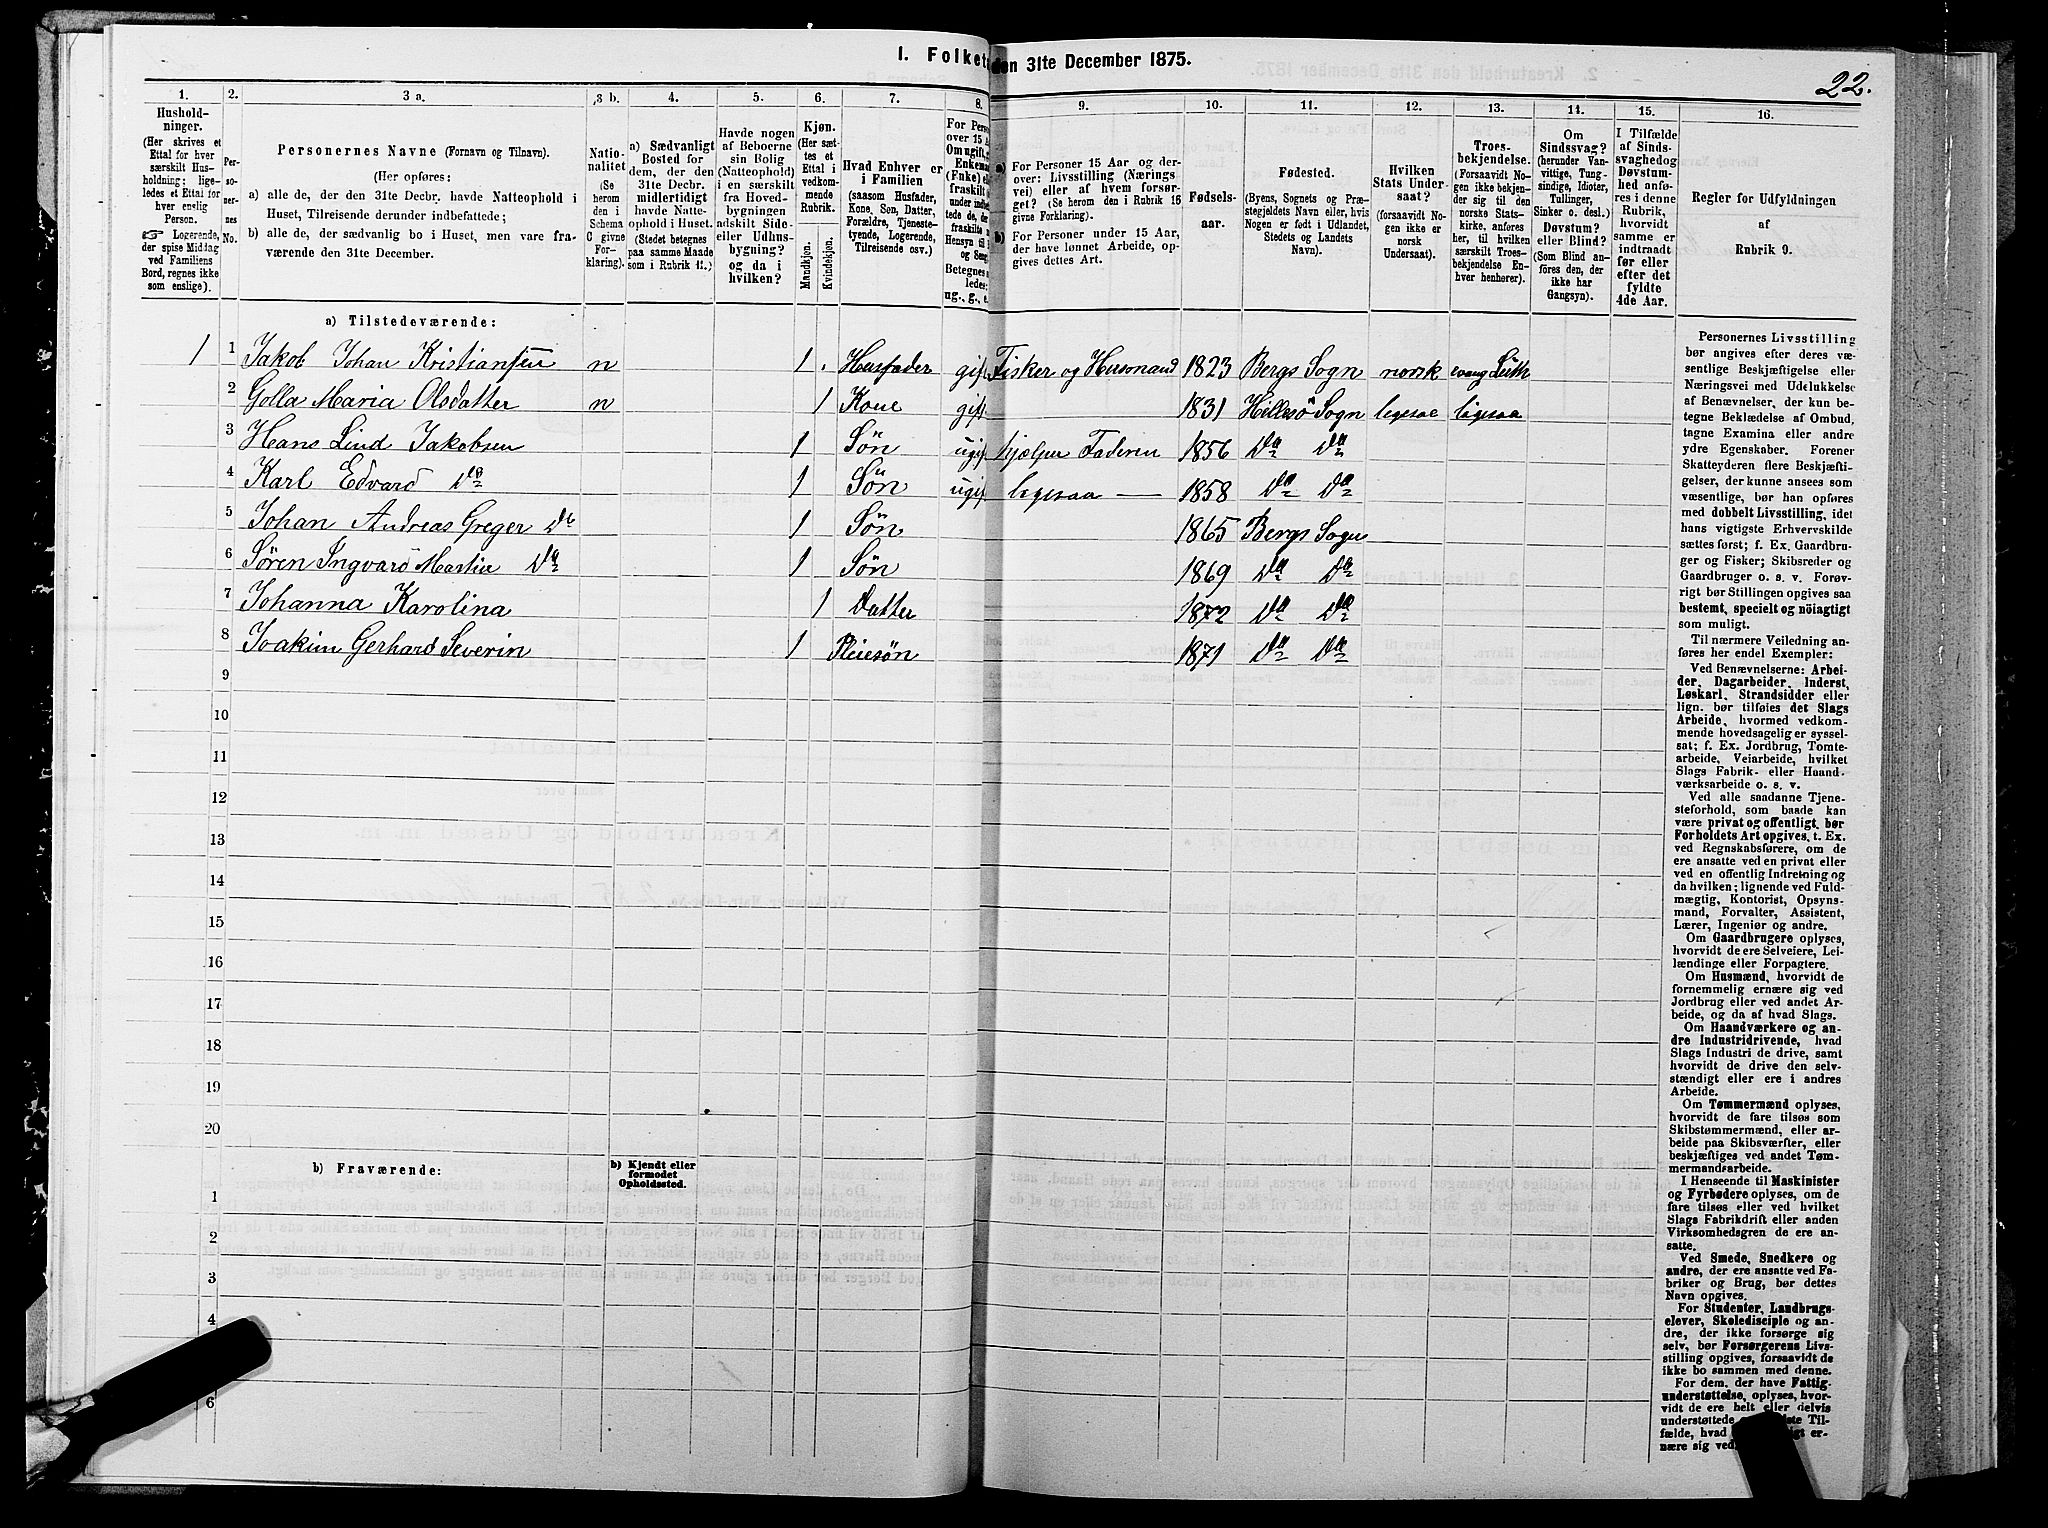 I. Folketæ
den 31te December 1875.
22.
1.
2.
3 a.
3 b.
4.
5.
6.
7.
8.
9.
10.
11.
12.
13.
14.
15.
16.
Hushold-
ninger.
(Her skrives et
Ettal for hver
særskilt Hus-
holdning; lige-
ledes et Ettal for
hver enslig
Person.
☞ Logerende,
der spise Middag
ved Familiens
Bord, regnes ikke
som enslige).
Per-
so-
ner-
nes
No.
Personernes Navne (Fornavn og Tilnavn).
(Her opføres:
a) alle de, der den 31te Decbr. havde Natteophold i
Huset, Tilreisende derunder indbefattede;
b) alle de, der sædvanlig bo i Huset, men vare fra-
værende den 31te December.
Natio-
nalitet
(Se
herom
den i
Schema
C givne
For-
klaring).
a) Sædvanligt
Bosted for
dem, der den
31te Decbr.
midlertidigt
havde Natte-
ophold i Huset.
(Stedet betegnes
paa samme Maade
som i Rubrik 11.)
Havde nogen
af Beboerne
sin Bolig
(Natteophold)
i en særskilt
fra Hoved-
bygningen
adskilt Side-
eller Udhus-
bygning?
og da i
hvilken?
Kjøn.
(Her sæt-
tes et
Ettal i
vedkom-
mende
Rubrik.
Mandkjøn.
Kvindekjøn.
Hvad Enhver er
i Familien
(saasom Husfader,
Kone, Søn, Datter,
Forældre, Tjeneste-
tyende, Logerende,
Tilreisende osv.)
For Pers
over 15 A
Om ugift, g
Enkema
(Enke) e
fraskilt
Betegnes
ledes:
ug., g., e.
a) For Personer 15 Aar og der-
over: Livsstilling (Nærings
vei) eller af hvem forsør-
get? (Se herom den i Rubrik 16
givne Forklaring).
b) For Personer under 15 Aar,
der have lønnet Arbeide, op-
gives dettes Art.
Fødsels-
aar.
Fødested.
(Byens, Sognets og Præ-
stegjeldets Navn eller, hvis
Nogen er født i Udlandet,
Stedets og Landets
Navn).
Hvilken
Stats Under-
saat?
(forsaavidt No-
gen ikke er
norsk
Undersaat).
Troes-
bekjendelse.
(Forsaavidt No-
gen ikke bekjen-
der sig til den
norske Stats-
kirke, anføres
her, til hvilken
særskilt Troes-
bekjendelse En-
hver henhører).
Om
Sindssvag?
(herunder Van-
vittige, Tung-
sindige, Idioter,
Tullinger,
Sinker o. desl.)
Døvstum?
eller Blind?
(Som Blind an-
føres den, der
ikke har
Gangsyn).
I Tilfælde
af Sinds-
svaghed og
Døvstum-
hed anfø-
res i denne
Rubrik,
hvorvidt
samme er
indtraadt
før eller
efter det
fyldte
4de Aar.
Regler for Udfyldningen
af
Rubrik 9.
a) Tilstedeværende:
1 1 Jakob Johan Kristiansen n 1 Husfader gift Fisker og Husmand 1823 Bergs Sogn norsk evang Luth
2 Golla Maria Olsdatter n 1 Kone gift 1831 Hillesö Sogn ligesaa ligesaa
3 Hans Lind Jakobsen 1 Sön ugift hjælper Faderen 1856 Do Do
4 Karl Edvard Do 1 Sön ugift ligesaa — 1858 Do Do
5 Johan Andreas Greger Do 1 Sön 1865 Bergs Sogn
6 Sören Ingvard Martin Do 1 Sön 1869 Do Do
7 Johanna Karolina 1 Datter 1872 Do Do
8 Joakim Gerhard Severin 1 Pleiesön 1871 Do Do
9
10
11
12
13
14
15
16
17
18
19
20
b) Fraværende:
b) Kjendt eller
formodet
Opholdssted.
1
2
3
4
6
Personernes Livsstilling
bør angives efter deres væ-
sentlige Beskjæftigelse eller
Næringsvei med Udelukkelse
af Benævnelser, der kun be-
tegne Beklædelse af Ombud,
tagne Examina eller andre
ydre Egenskaber. Forener
Skatteyderen flere Beskjæfti-
gelser, der kunne ansees som
væsentlige, bør han opføres
med dobbelt Livsstilling, idet
hans vigtigste Erhvervskilde
sættes først; f. Ex. Gaardbru-
ger og Fisker; Skibsreder og
Gaardbruger o. s. v. Forøv-
rigt bør Stillingen opgives saa
bestemt, specielt og nöiagtigt
som muligt.
Til nærmere Veiledning an-
føres her endel Exempler:
Ved Benævnelserne: Arbei-
der, Dagarbeider, Inderst,
Løskarl, Strandsidder eller
lign. bør tilføies det Slags
Arbeide, hvormed vedkom-
mende hovedsagelig er syssel-
sat; f. Ex. Jordbrug, Tomte-
arbeide, Veiarbeide, hvilket
Slags Fabrik- eller Haand-
værksarbeide o. s. v.
Ved alle saadanne Tjene-
steforhold, som baade kan
være privat og offentligt, bør
Forholdets Art opgives, t. Ex.
ved Regnskabsførere, om de
ere ansatte ved en privat eller
ved en offentlig Indretning og
da hvilken; lignende ved Fuld-
mægtig, Kontorist, Opsyns-
mand, Forvalter, Assistent,
Lærer, Ingeniør og andre.
Om Gaardbrugere oplyses,
hvorvidt de ere Selveiere, Lei-
lændinge eller Forpagtere.
Om Husmænd, hvorvidt de
fornemmelig ernære sig ved
Jordbrug eller ved andet Ar-
beide, og da af hvad Slags.
Om Haandværkere og an-
dre Industridrivende, hvad
Slags Industri de drive, samt
hvorvidt de drive den selv-
stændigt eller ere i andres
Arbeide.
Om Tømmermænd oplyses,
hvorvidt de fare tilsøs som
Skibstømmermænd, eller ar-
beide paa Skibsværfter, eller
beskjæftiges ved andet Tøm-
mermandsarbeide.
I Henseende til Maskinister
og Fyrbødere oplyses, om de
fare tilsøs eller ved hvilket
Slags Fabrikdrift eller anden
Virksomhedsgren de ere an-
satte.
Ved Smede, Snedkere og
andre, der ere ansatte ved Fa-
briker og Brug, bør dettes
Navn opgives.
For Studenter, Landbrugs-
elever, Skoledisciple og an-
dre, der ikke forsørge sig
selv, bør Forsørgerens Livs-
stilling opgives, forsaavidt de
ikke bo sammen med denne.
For dem, der have Fattig-
understøttelse, oplyses, hvor-
vidt de ere helt eller delvis
understøttede
fælde, hvad
nære sig ved